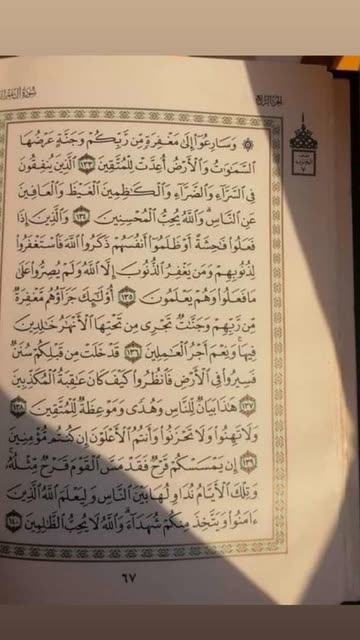 سورة آل عمران
الجزء الرابع
۞ وَسَارِعُوٓا۟ إِلَىٰ مَغْفِرَةٍ مِّن رَّبِّكُمْ وَجَنَّةٍ عَرْضُهَا
ٱلسَّمَٰوَٰتُ وَٱلْأَرْضُ أُعِدَّتْ لِلْمُتَّقِينَ ١٣٣ ٱلَّذِينَ يُنفِقُونَ
فِى ٱلسَّرَّآءِ وَٱلضَّرَّآءِ وَٱلْكَٰظِمِينَ ٱلْغَيْظَ وَٱلْعَافِينَ
عَنِ ٱلنَّاسِ وَٱللَّهُ يُحِبُّ ٱلْمُحْسِنِينَ ١٣٤ وَٱلَّذِينَ إِذَا
فَعَلُوا۟ فَٰحِشَةً أَوْ ظَلَمُوٓا۟ أَنفُسَهُمْ ذَكَرُوا۟ ٱللَّهَ فَٱسْتَغْفَرُوا۟
لِذُنُوبِهِمْ وَمَن يَغْفِرُ ٱلذُّنُوبَ إِلَّا ٱللَّهُ وَلَمْ يُصِرُّوا۟ عَلَىٰ
مَا فَعَلُوا۟ وَهُمْ يَعْلَمُونَ ١٣٥ أُو۟لَٰٓئِكَ جَزَآؤُهُم مَّغْفِرَةٌ
مِّن رَّبِّهِمْ وَجَنَّٰتٌ تَجْرِى مِن تَحْتِهَا ٱلْأَنْهَٰرُ خَٰلِدِينَ
فِيهَا وَنِعْمَ أَجْرُ ٱلْعَٰمِلِينَ ١٣٦ قَدْ خَلَتْ مِن قَبْلِكُمْ سُنَنٌ
فَسِيرُوا۟ فِى ٱلْأَرْضِ فَٱنظُرُوا۟ كَيْفَ كَانَ عَٰقِبَةُ ٱلْمُكَذِّبِينَ
١٣٧ هَٰذَا بَيَانٌ لِّلنَّاسِ وَهُدًى وَمَوْعِظَةٌ لِّلْمُتَّقِينَ ١٣٨
وَلَا تَهِنُوا۟ وَلَا تَحْزَنُوا۟ وَأَنتُمُ ٱلْأَعْلَوْنَ إِن كُنتُم مُّؤْمِنِينَ
١٣٩ إِن يَمْسَسْكُمْ قَرْحٌ فَقَدْ مَسَّ ٱلْقَوْمَ قَرْحٌ مِّثْلُهُۥ
وَتِلْكَ ٱلْأَيَّامُ نُدَاوِلُهَا بَيْنَ ٱلنَّاسِ وَلِيَعْلَمَ ٱللَّهُ ٱلَّذِينَ
ءَامَنُوا۟ وَيَتَّخِذَ مِنكُمْ شُهَدَآءَ وَٱللَّهُ لَا يُحِبُّ ٱلظَّٰلِمِينَ ١٤٠
٧
٦٧